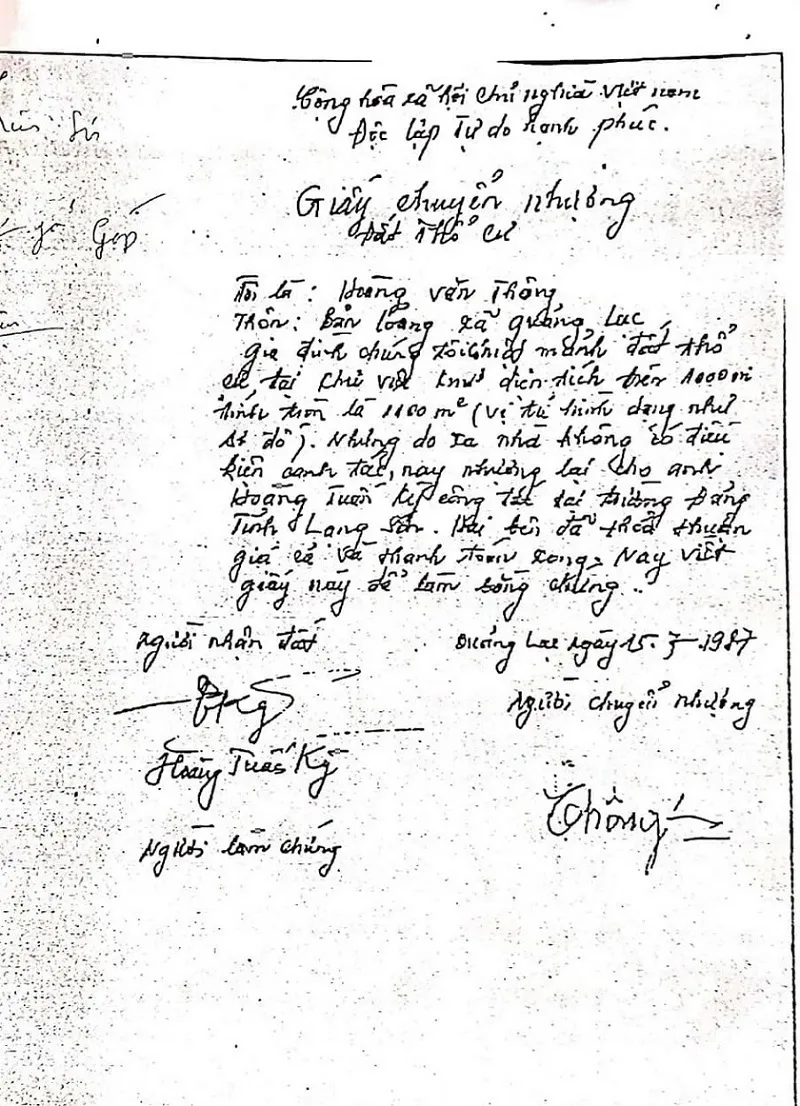 Cộng hòa xã hội chủ nghĩa Việt nam
Độc lập Tự do hạnh phúc.
Giấy chuyển nhượng
Đất Thổ cư
Tôi là : Hoàng Văn Thông
Thôn: Bản Loỏng xã Quảng Lạc
gia đình chúng tôi có mảnh đất thổ
cư, tại khu vực diện tích trên 1000 m
tính tròn là 1100 m² (vị trí hình dạng như
sơ đồ). Nhưng do xa nhà không có điều
kiện canh tác, nay nhượng lại cho anh
Hoàng Tuấn Kỳ công tác tại trường Đảng
Tỉnh Lạng Sơn. Hai bên đã thoả thuận
giá cả và thanh toán xong, Nay viết
giấy này để làm bằng chứng ..
Người nhận đất
Quảng Lạc ngày 15. 1987
Người chuyển nhượng
Hoàng Tuấn Kỳ
Thông
Người làm chứng
Góp